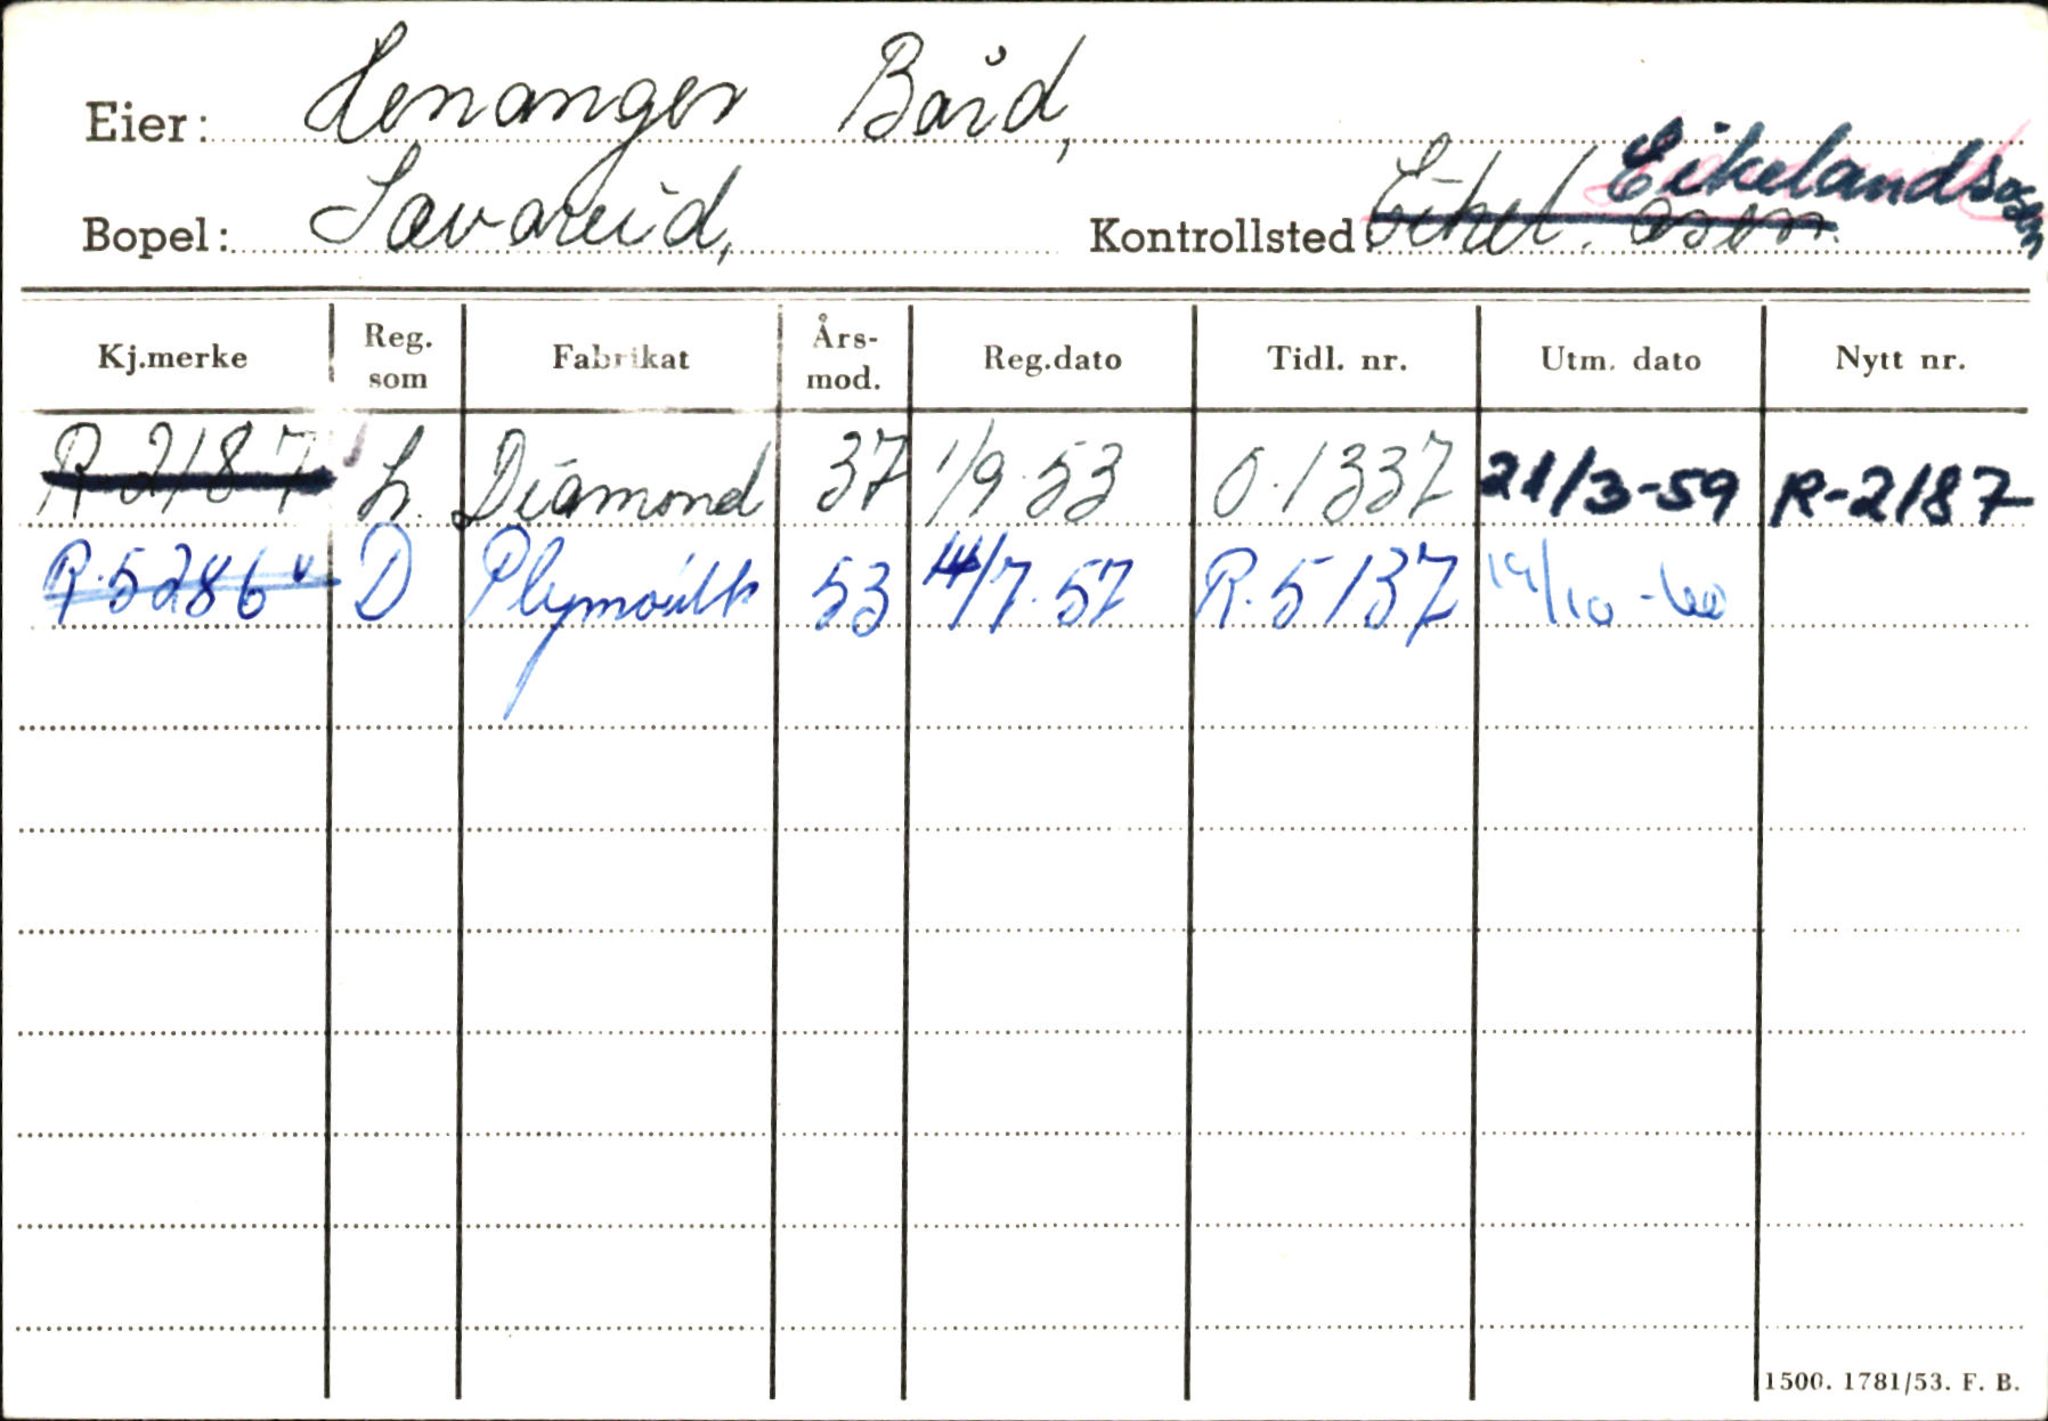 Eier: Henanger Bård,
Bopel: Sævareid, Kontrollsted Eikel. osen. Eikelandsosen
Kj.merke Reg. som Fabrikat Års-mod. Reg.dato Tidl. nr. Utm. dato Nytt nr.
R-2187 L. Diamond 37 1/9-53 O.1337 21/3-59 R-2187
R.5286 D Plymouth 53 14/7.57 R.5137 19/10-60
1500. 1781/53. F. B.